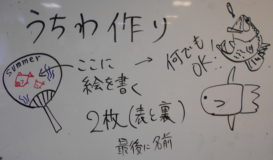 うちわ作り
summer
ここに
絵を書く
何でも
OK!
2枚(表と裏)
最後に名前